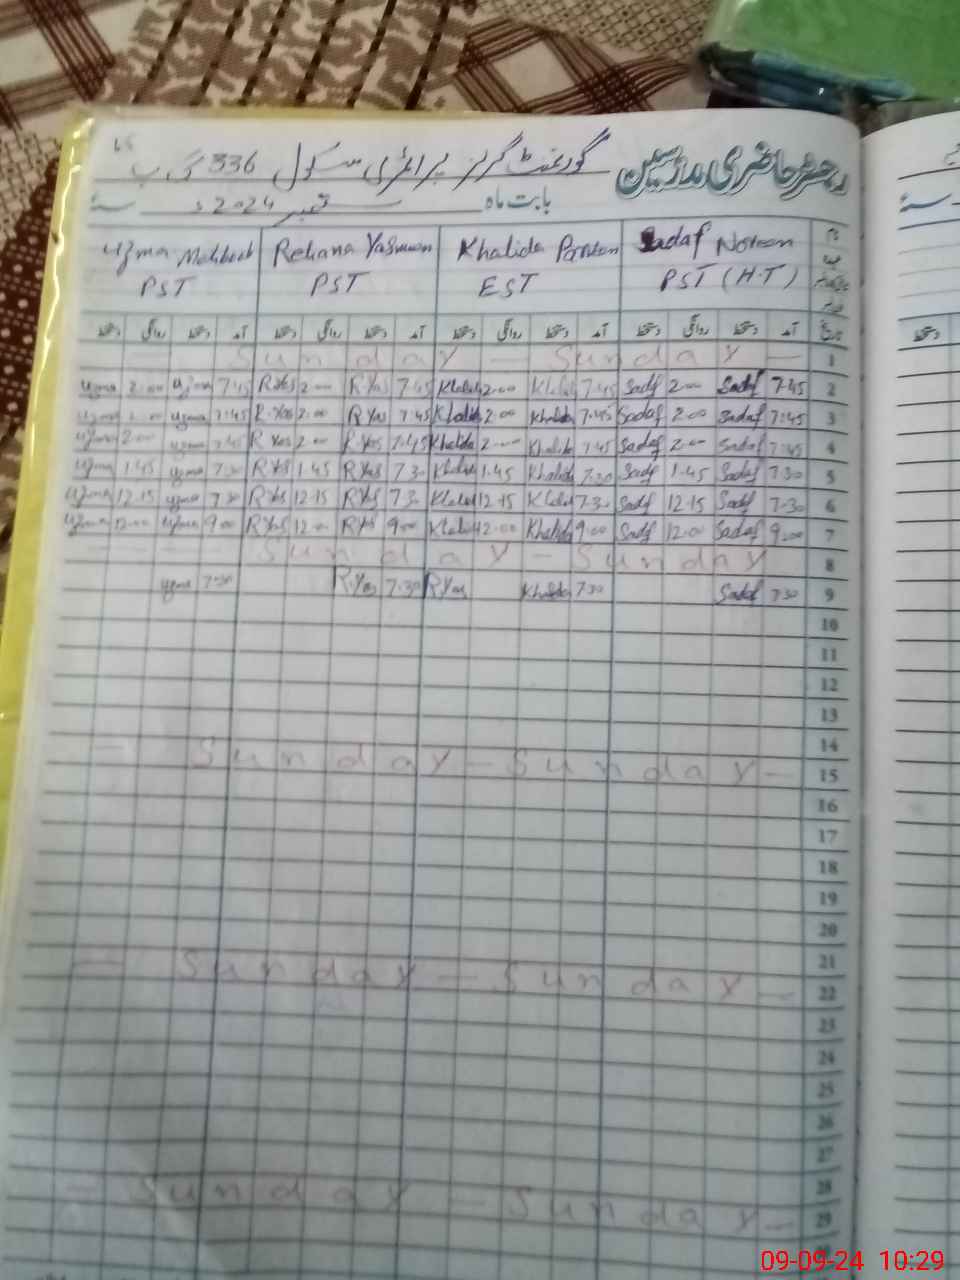 رجسٹر حاضری مدرسین گورنمنٹ گرلز پرائمری سکول 336 گ ب
بابت ماہ ستمبر 2024ء سنہ
Uzma Mehboob Rehana Yasmeen Khalida Parveen Sadaf Noreen
PST PST EST PST (H.T)
آمد دستخط روانگی دستخط آمد دستخط روانگی دستخط آمد دستخط روانگی دستخط آمد دستخط روانگی دستخط
Sunday - Sunday - 1
uzma 2.00 uzma 7.45 R.Yas 2.00 R Yas 7.45 Khalida 2.00 Khalida 7.45 Sadf 2.00 Sadaf 7.45 2
uzma 2.00 uzma 7:45 R.Yas 2.00 R Yas 7.45 Khalida 2.00 Khalida 7.45 Sadaf 2.00 Sadaf 7:45 3
uzma 2.00 uzma 7.45 R Yas 2.00 R.Yas 7.45 Khalida 2.00 Khalida 7.45 Sadaf 2.00 Sadaf 7.45 4
uzma 1.45 uzma 7.30 R Yas 1.45 R Yas 7.30 Khalida 1.45 Khalida 7.30 Sadf 1.45 Sadaf 7.30 5
uzma 12.15 uzma 7.30 R Yas 12.15 R Yas 7.30 Khalida 12.15 Khalida 7.30 Sadf 12.15 Sadaf 7.30 6
uzma 12.00 uzma 9.00 R Yas 12.00 R Yas 9.00 Khalida 12.00 Khalida 9.00 Sadf 12.00 Sadaf 9.00 7
Sunday - Sunday 8
uzma 7.30 R.Yas 7.30 R.Yas Khalida 7.30 Sadaf 7.30 9
10
11
12
13
14
Sunday - Sunday - 15
16
17
18
19
20
21
Sunday - Sunday - 22
23
24
25
26
27
28
Sunday - Sunday - 29
09-09-24 10:29